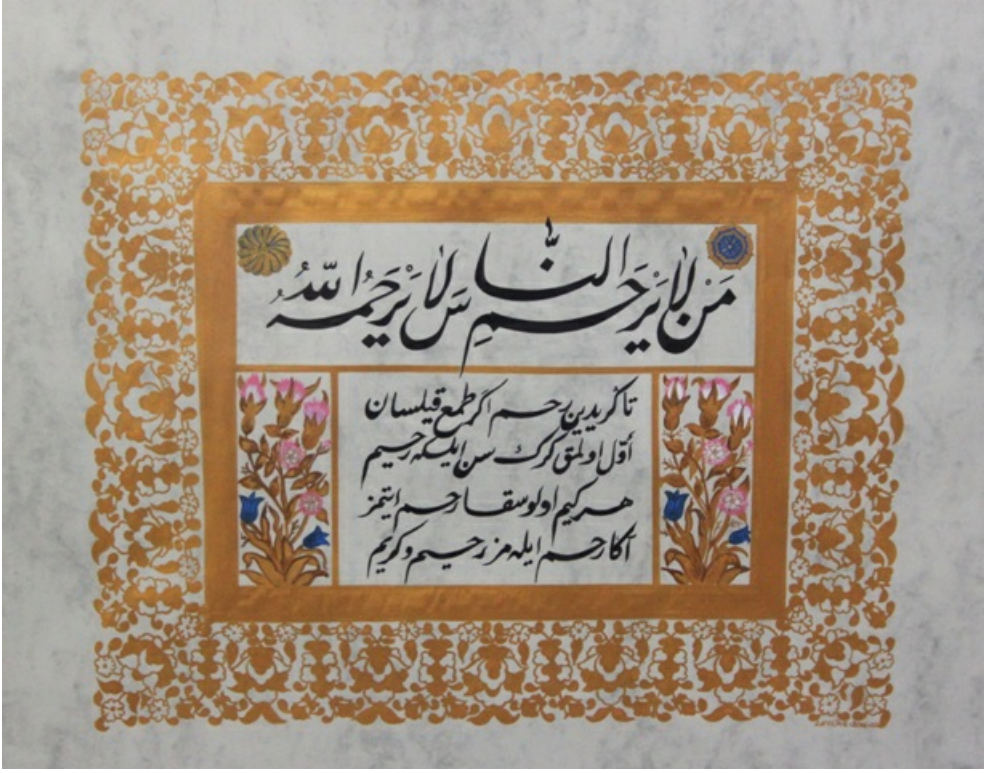 مَنْ لَا يَرْحَمِ النَّاسَ لَا يَرْحَمُهُ اللّٰهُ
تاگریدین رحم اگر طمع قیلسان
أوّل اولمق كرك سن ایلكه رحیم
هر كیم اولوسقا رحم ایتمز
آكا رحم ایله مز رحیم و كریم